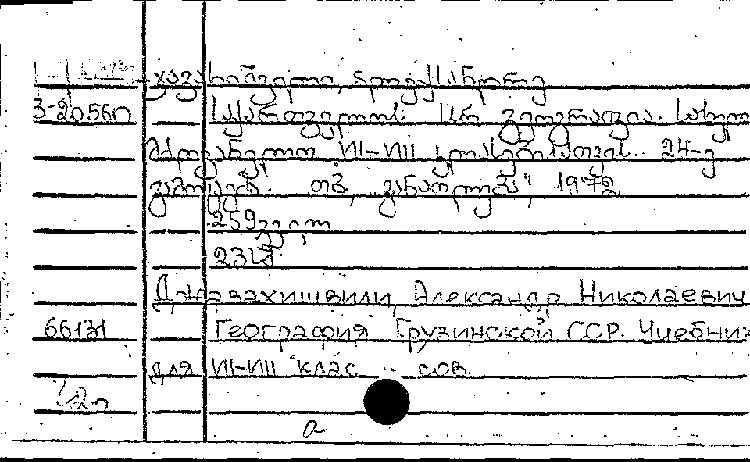 ჯავახიშვილი, ალექსანდრე
3-20560 საქართველოს სსრ გეოგრაფია. სახელ
მძღვანელო VII-VIII კლასებისათვის. 24-ე
გამოცემა. თბ., "განათლება", 1972
259 გვ.
23სმ
Джавахишвили, Александр Николаевич
66131 География Грузинской ССР. Учебник
для VII-VIII клас сов
а